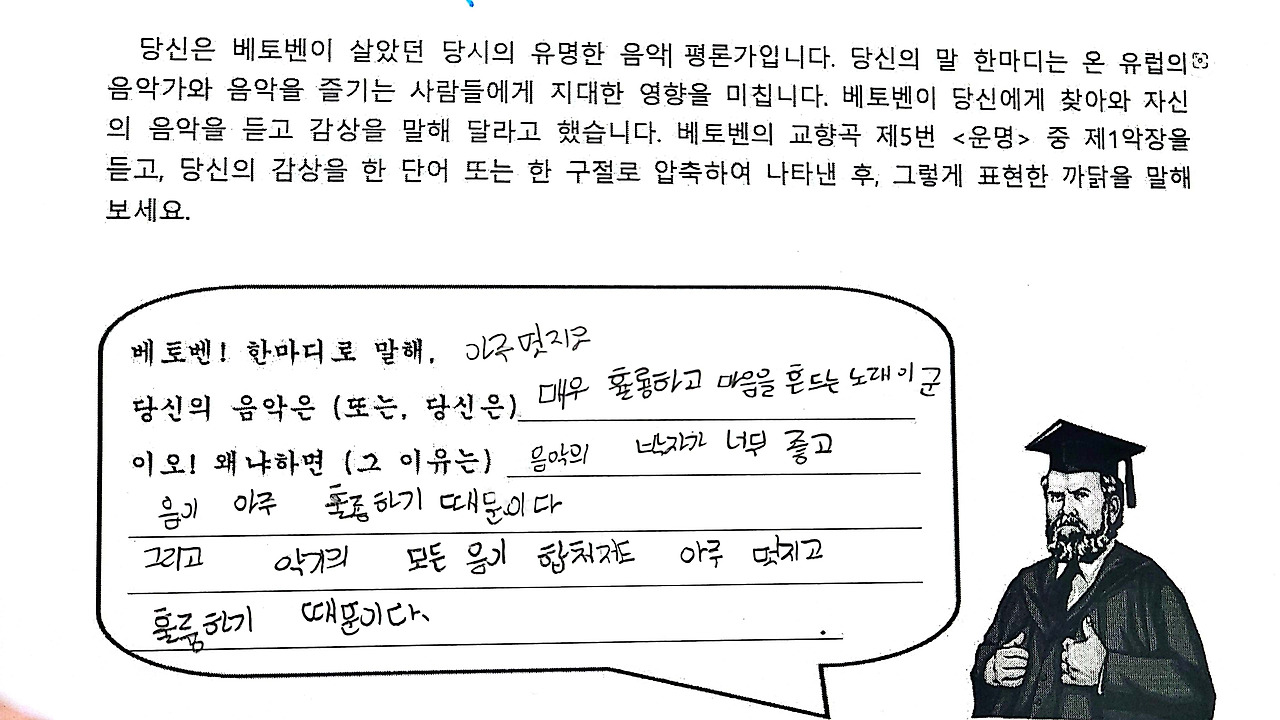 당신은 베토벤이 살았던 당시의 유명한 음악 평론가입니다. 당신의 말 한마디는 온 유럽의
음악가와 음악을 즐기는 사람들에게 지대한 영향을 미칩니다. 베토벤이 당신에게 찾아와 자신
의 음악을 듣고 감상을 말해 달라고 했습니다. 베토벤의 교향곡 제5번 <운명> 중 제1악장을
듣고, 당신의 감상을 한 단어 또는 한 구절로 압축하여 나타낸 후, 그렇게 표현한 까닭을 말해
보세요.
베토벤! 한마디로 말해, 아주 멋지오
당신의 음악은 (또는, 당신은) 매우 훌륭하고 마음을 흔드는 노래이군
이오! 왜냐하면 (그 이유는) 음악의 박자가 너무 좋고
음이 아주 훌륭하기 때문이다
그리고 악기의 모든 음이 합쳐져도 아주 멋지고
훌륭하기 때문이다.